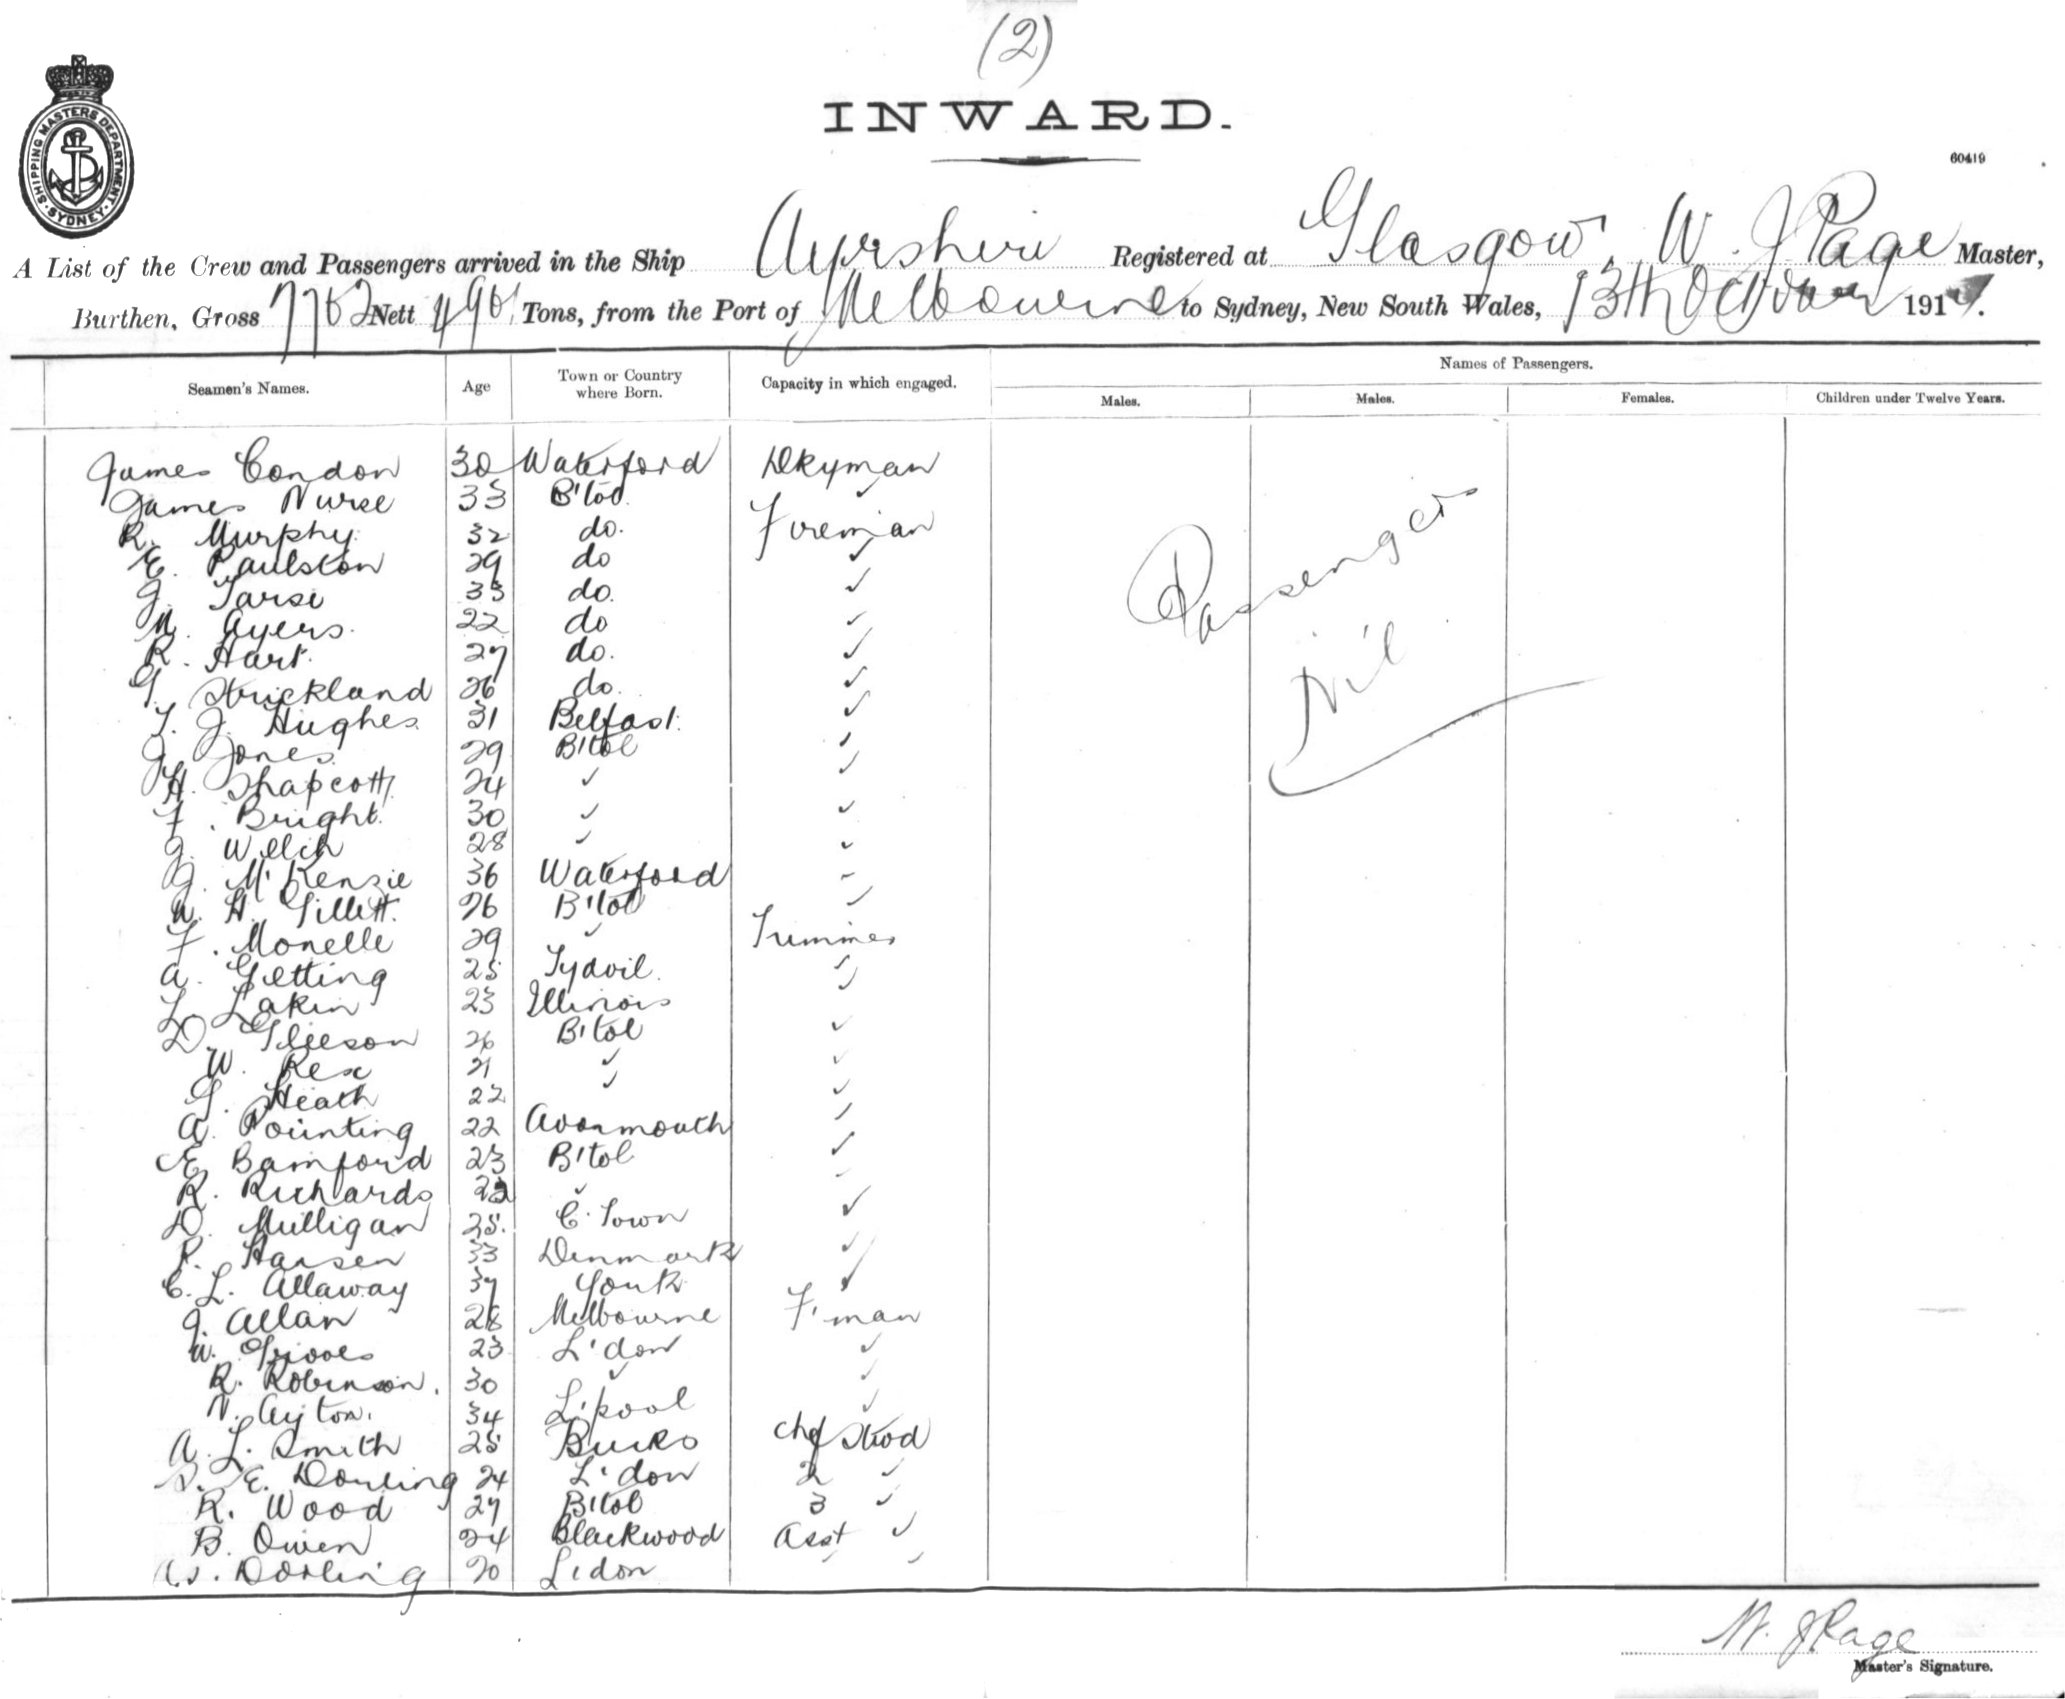 (2)
INWARD.
SHIPPING MASTERS DEPARTMENT
SYDNEY
60419
A List of the Crew and Passengers arrived in the Ship Ayrshire Registered at Glasgow, W. J Page Master,
Burthen, Gross 7762 Nett Tons, from the Port of Melbourne to Sydney, New South Wales, 13th October 191
Seamen's Names. Age Town or Country where Born. Capacity in which engaged. Names of Passengers.
Males. Males. Females. Children under Twelve Years.
James Condon 30 Waterford Dkyman
James Nurse 33 B'tol ✓
R. Murphy 32 do. Fireman
E. Paulston 29 do ✓
J. Tarsi 33 do. ✓
Ayers. 22 do ✓
R. Hart. 27 do. ✓
G. Strickland 26 do. ✓
T. J. Hughes 31 Belfast. ✓
J. Jones. 29 B'tol ✓
H. Shapcott 24 ✓ ✓
F. Bright. 30 ✓ ✓
J. Welch 28 ✓ ✓
J. McKenzie 36 Waterford ✓
W. H. Gillett. 26 B'tol ✓
F. Monelle 29 ✓ Trimmer
A. Getting 25 Tydvil. ✓
L. Lakin 23 Illinois ✓
D. Gleeson 26 B'tol ✓
W. Rex 21 ✓ ✓
G. Heath 22 ✓ ✓
A. Pointing 22 Avonmouth ✓
E Bamford 23 B'tol ✓
R. Richards 22 ✓ ✓
D. Milligan 25. C. Town ✓
P. Hansen 33 Denmark ✓
C. L. Allaway 37 York ✓
J. Allan 28 Melbourne F'man
W. Grooves 23 L'don ✓
R. Robinson. 30 ✓ ✓
N. Ayton. 34 L'pool ✓
A. L. Smith 25 Bucks Chf Stwd
S. E. Dorling 24 L'don 2 ✓
R. Wood 27 B'tol 3 ✓
B. Owen 24 Blackwood Asst ✓
Dorling 20 L'don ✓
Passengers
Nil
W. J Page
Master's Signature.